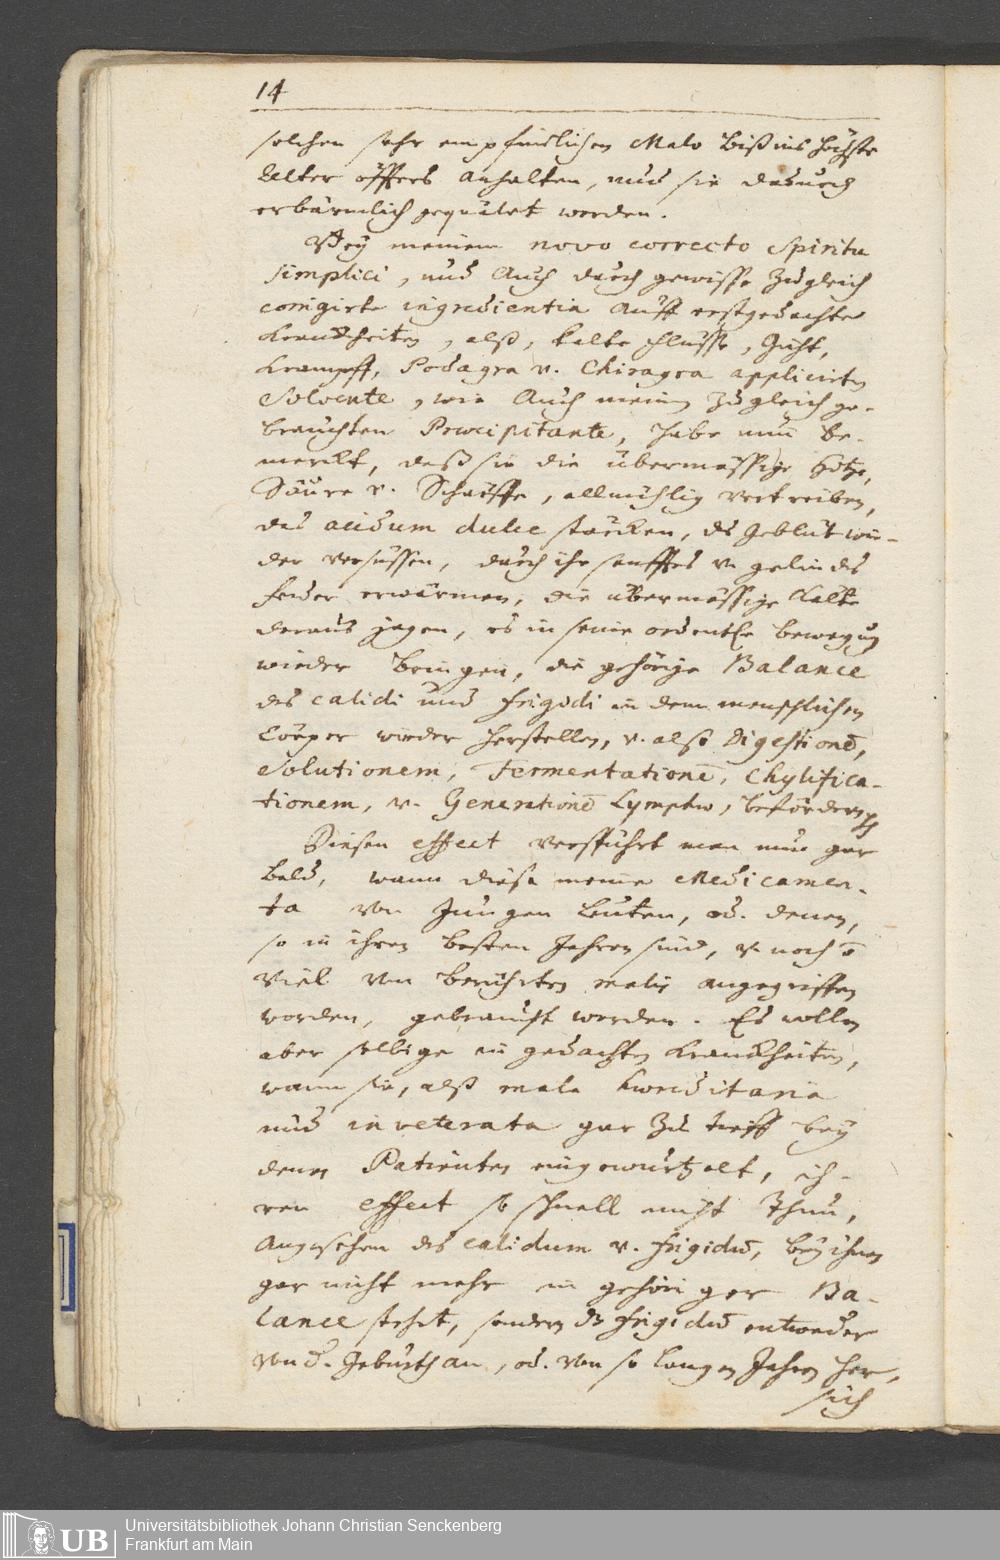 14
solchen sehr empfindlichen Malo biß ins höchste
Alter öffters anhalten, und sie dadurch
erbärmlich gequälet werden.
Bey meinem novo correcto Spiritu
simplici, und auch durch gewisse zugleich
corrigirte ingredientia auff erstgedachte
Kranckheiten, alß, kalte Flüsse, Gicht,
Krampff, Podagra v. Chiragra applicirten
Solvente, wie auch meinen zugleich ge-
brauchten Præcipitante, habe nun be-
merckt, daß sie die übermässige Hitze,
Säure v. Schärffe, allmählig vertreiben,
das acidum dulce stärcken, ds Geblüt wie-
der versüssen, durch ihr sanfftes v. gelindes
Feuer erwärmen, die übermässige Kälte
daraus jagen, es in seine ordentl. bewegung
wieder bringen, die gehörige Balance
des calidi und frigidi in dem menschlichen
Cörper wieder herstellen, v. also Digestionē,
Solutionem, Fermentationē, Chylifica-
tionem, v. Generationē Lymphæ, befördern.
Diesen effect verspührt man nun gar
bald, wann diese meine Medicamen-
ta von Jungen Leuten, od. denen,
so in ihren besten Jahren sind, v. noch ō
viel von berührten malis angegriffen
worden, gebraucht werden. Es wollen
aber selbige in gedachten Kranckheiten,
wann sie, alß mala hæreditaria
und inveterata gar zu tieff bey
denen Patienten eingewurtzelt, ih-
ren effect so schnell nicht thun,
angesehen ds calidum v. frigidū, bey ihnen
gar nicht mehr in gehöriger Ba-
lance stehet, sondern ds frigidū entweder
von d. Geburth an, od. von so langen Jahren her,
sich
UB
Universitätsbibliothek Johann Christian Senckenberg
Frankfurt am Main